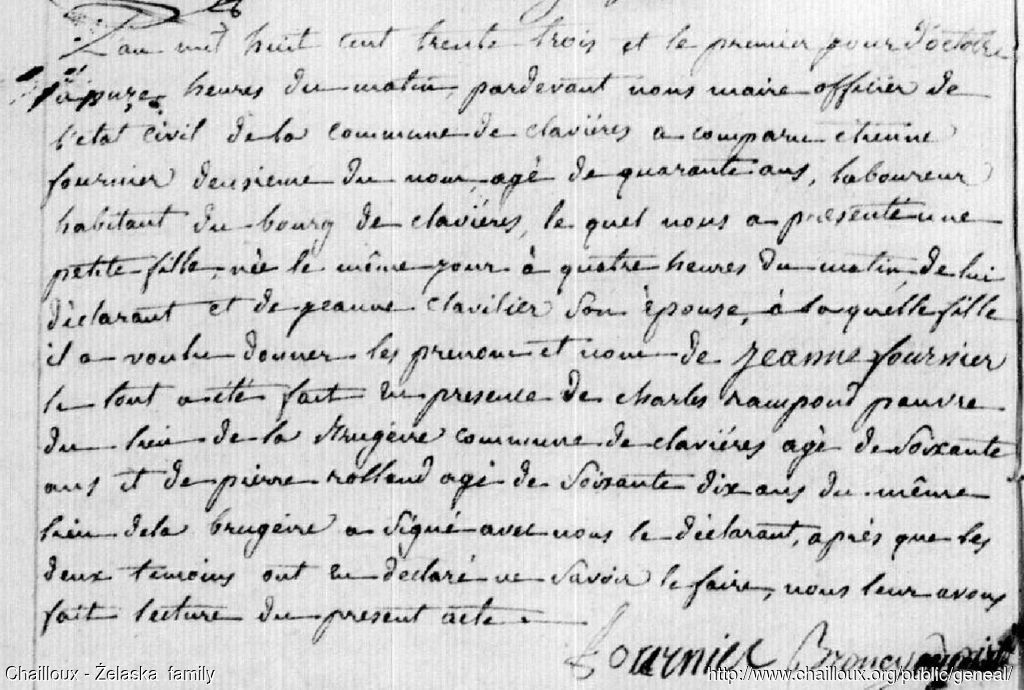 L'an mil huit cent trente trois et le premier jour d'octobre
à onze heures du matin, pardevant nous maire officier de
l'etat civil de la commune de clavières a comparu etienne
fournier deusieme du nom, agé de quarante ans, laboureur
habitant du bourg de clavières, le quel nous a presenté une
petite fille, née le même jour à quatre heures du matin, de lui
déclarant et de jeanne clavilier son épouse, à laquelle fille
il a voulu donner les prenom et nom de jeanne fournier
le tout a été fait en presence de charles rampond pauvre
du lieu de la Brugeire commune de clavières agé de soixante
ans et de pierre rolland agé de soixante dix ans du même
lieu dela brugeire a signé avec nous le déclarant, après que les
deux temoins ont en declaré ne savoir le faire, nous leur avons
fait lecture du present acte
fournier
Chailloux - Żelaska family
http://www.chailloux.org/public/geneal/